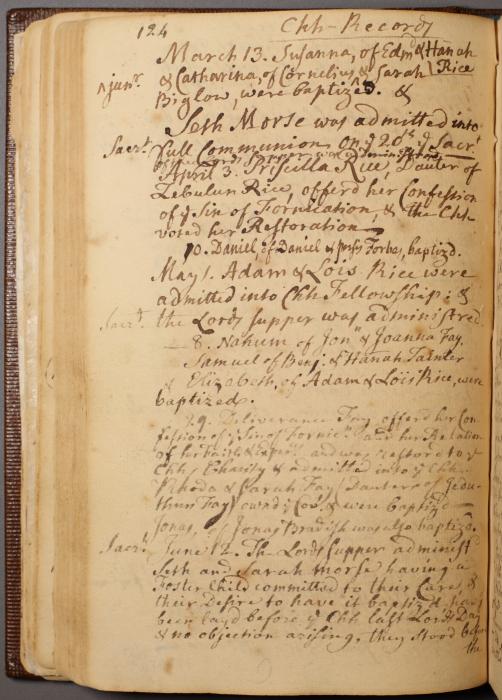 124
Chh-Records
March 13. Susanna, of Edmd & Hanah
& Catharina, of Cornelius & Sarah | Rice
^ junr.
Biglow, were baptized. &
Seth Morse was admitted into
full Communion On ye 20th ye Sacrt
Sacrt.
of the Lords Supper was administerd
April 3. Priscilla Rice, Dauter of
Zebulun Rice, offerd her Confession
of ye Sin of Fornication, & the Chh
voted her Restoration
10. Daniel, of Daniel & Forbes, baptizd.
May 1. Adam & Lois Rice were
admitted into Chh Fellowship: &
Sacrt.
the Lords Supper was administred
8. Nahum of Jonn & Joanna Fay,
Samuel of Benj: & Hanah Tainter
& Elizabeth, of Adam & Lois Rice, were
baptized.
29. Deliverance Fay offerd her Con
fession of ye Sin of Fornicn. and her Relation
of her Faith & and was restord to ye
Chhs Charity & admitted into ye Chh
Rhoda & Sarah Fay (Dauters of Jedu-
thun Fay) ownd ye Cov. & were baptizd
Jonas, of Jonas Bradish was also baptizd.
Sacrt.
June 12. The Lords Supper administ
Seth and Sarah Morse having a
Foster Child committed to their Care, &
their Desire to have it baptizd, having
been layd before ye Chh last Lords Day
& no objection arising, they stood before
the